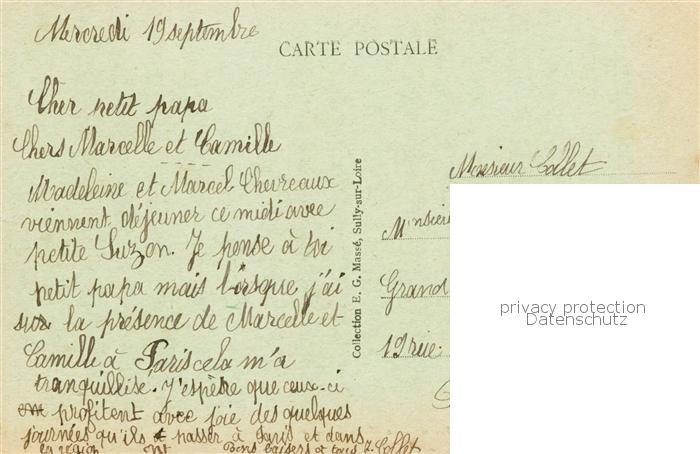 Mercredi 19 septembre
CARTE POSTALE
Cher petit papa
Chers Marcelle et Camille
Madeleine et Marcel Chevreaux
viennent déjeuner ce midi avec
petite Suzon. Je pense à toi
petit papa mais lorsque j'ai
su la présence de Marcelle et
Camille à Paris cela m'a
tranquillise. J'espère que ceux-ci
profitent avec joie des quelques
journées qu'ils passer à Paris et dans
la région ont Bons baisers à tous Z. Collet
Collection E. G. Massé, Sully-sur-Loire
Monsieur Collet
Monsieur
Grand
19 rue
privacy protection
Datenschutz